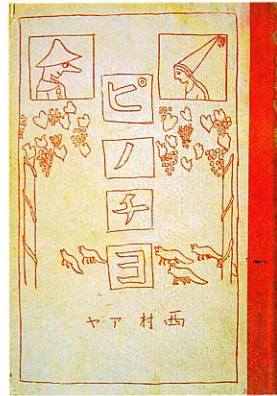 ピノチヨ
西村アヤ